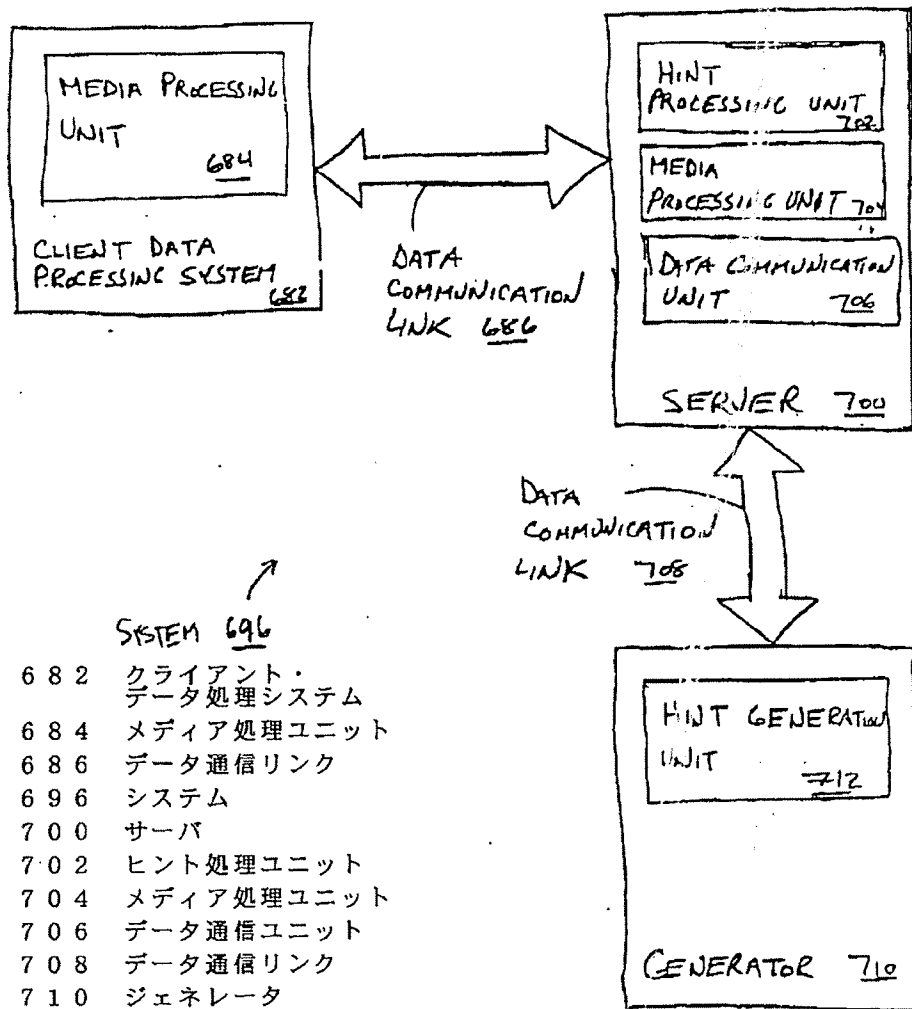 MEDIA PROCESSING
UNIT
684
CLIENT DATA
PROCESSING SYSTEM
682
DATA
COMMUNICATION
LINK 686
HINT
PROCESSING UNIT
702
MEDIA
PROCESSING UNIT 704
DATA COMMUNICATION
UNIT 706
SERVER 700
DATA
COMMUNICATION
LINK 708
SYSTEM 696
HINT GENERATION
UNIT
712
GENERATOR 710
682 クライアント・
データ処理システム
684 メディア処理ユニット
686 データ通信リンク
696 システム
700 サーバ
702 ヒント処理ユニット
704 メディア処理ユニット
706 データ通信ユニット
708 データ通信リンク
710 ジェネレータ